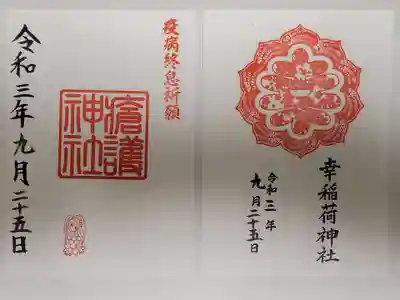 幸稲荷神社
令和三年
九月二十五日
疫病終息祈願
瘡護
神社
令和三年九月二十五日